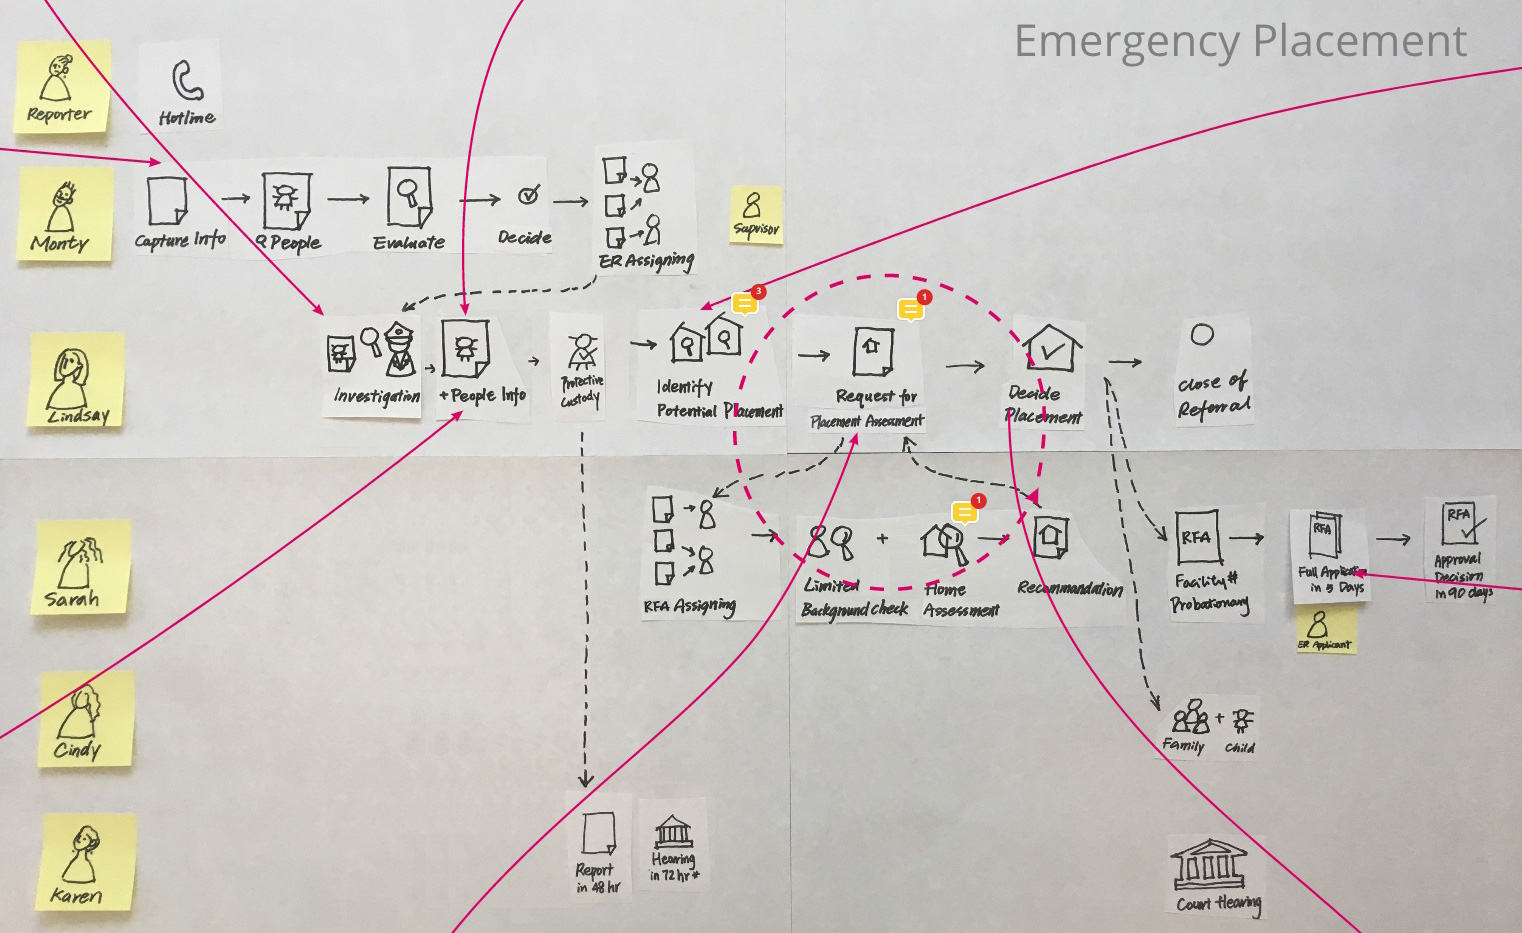 Emergency Placement
Reporter
Hotline
Monty
Capture Info
People
Evaluate
Decide
ER Assigning
Supvisor
Lindsay
Investigation
+People Info
Protective
Custody
Identify
Potential Placement
3
Request for
Placement Assesment
1
Decide
Placement
close of
Referral
Sarah
RFA Assigning
Limited
Background check
+
Home
Assessment
1
Recommandation
RFA
Facility#
Probationary
RFA
Full Application
in 5 Days
ER Applicant
RFA
Approval
Decision
in 90 days
Cindy
Family
+
Child
Karen
Report
in 48 hr
Hearing
in 72 hr*
Court Hearing